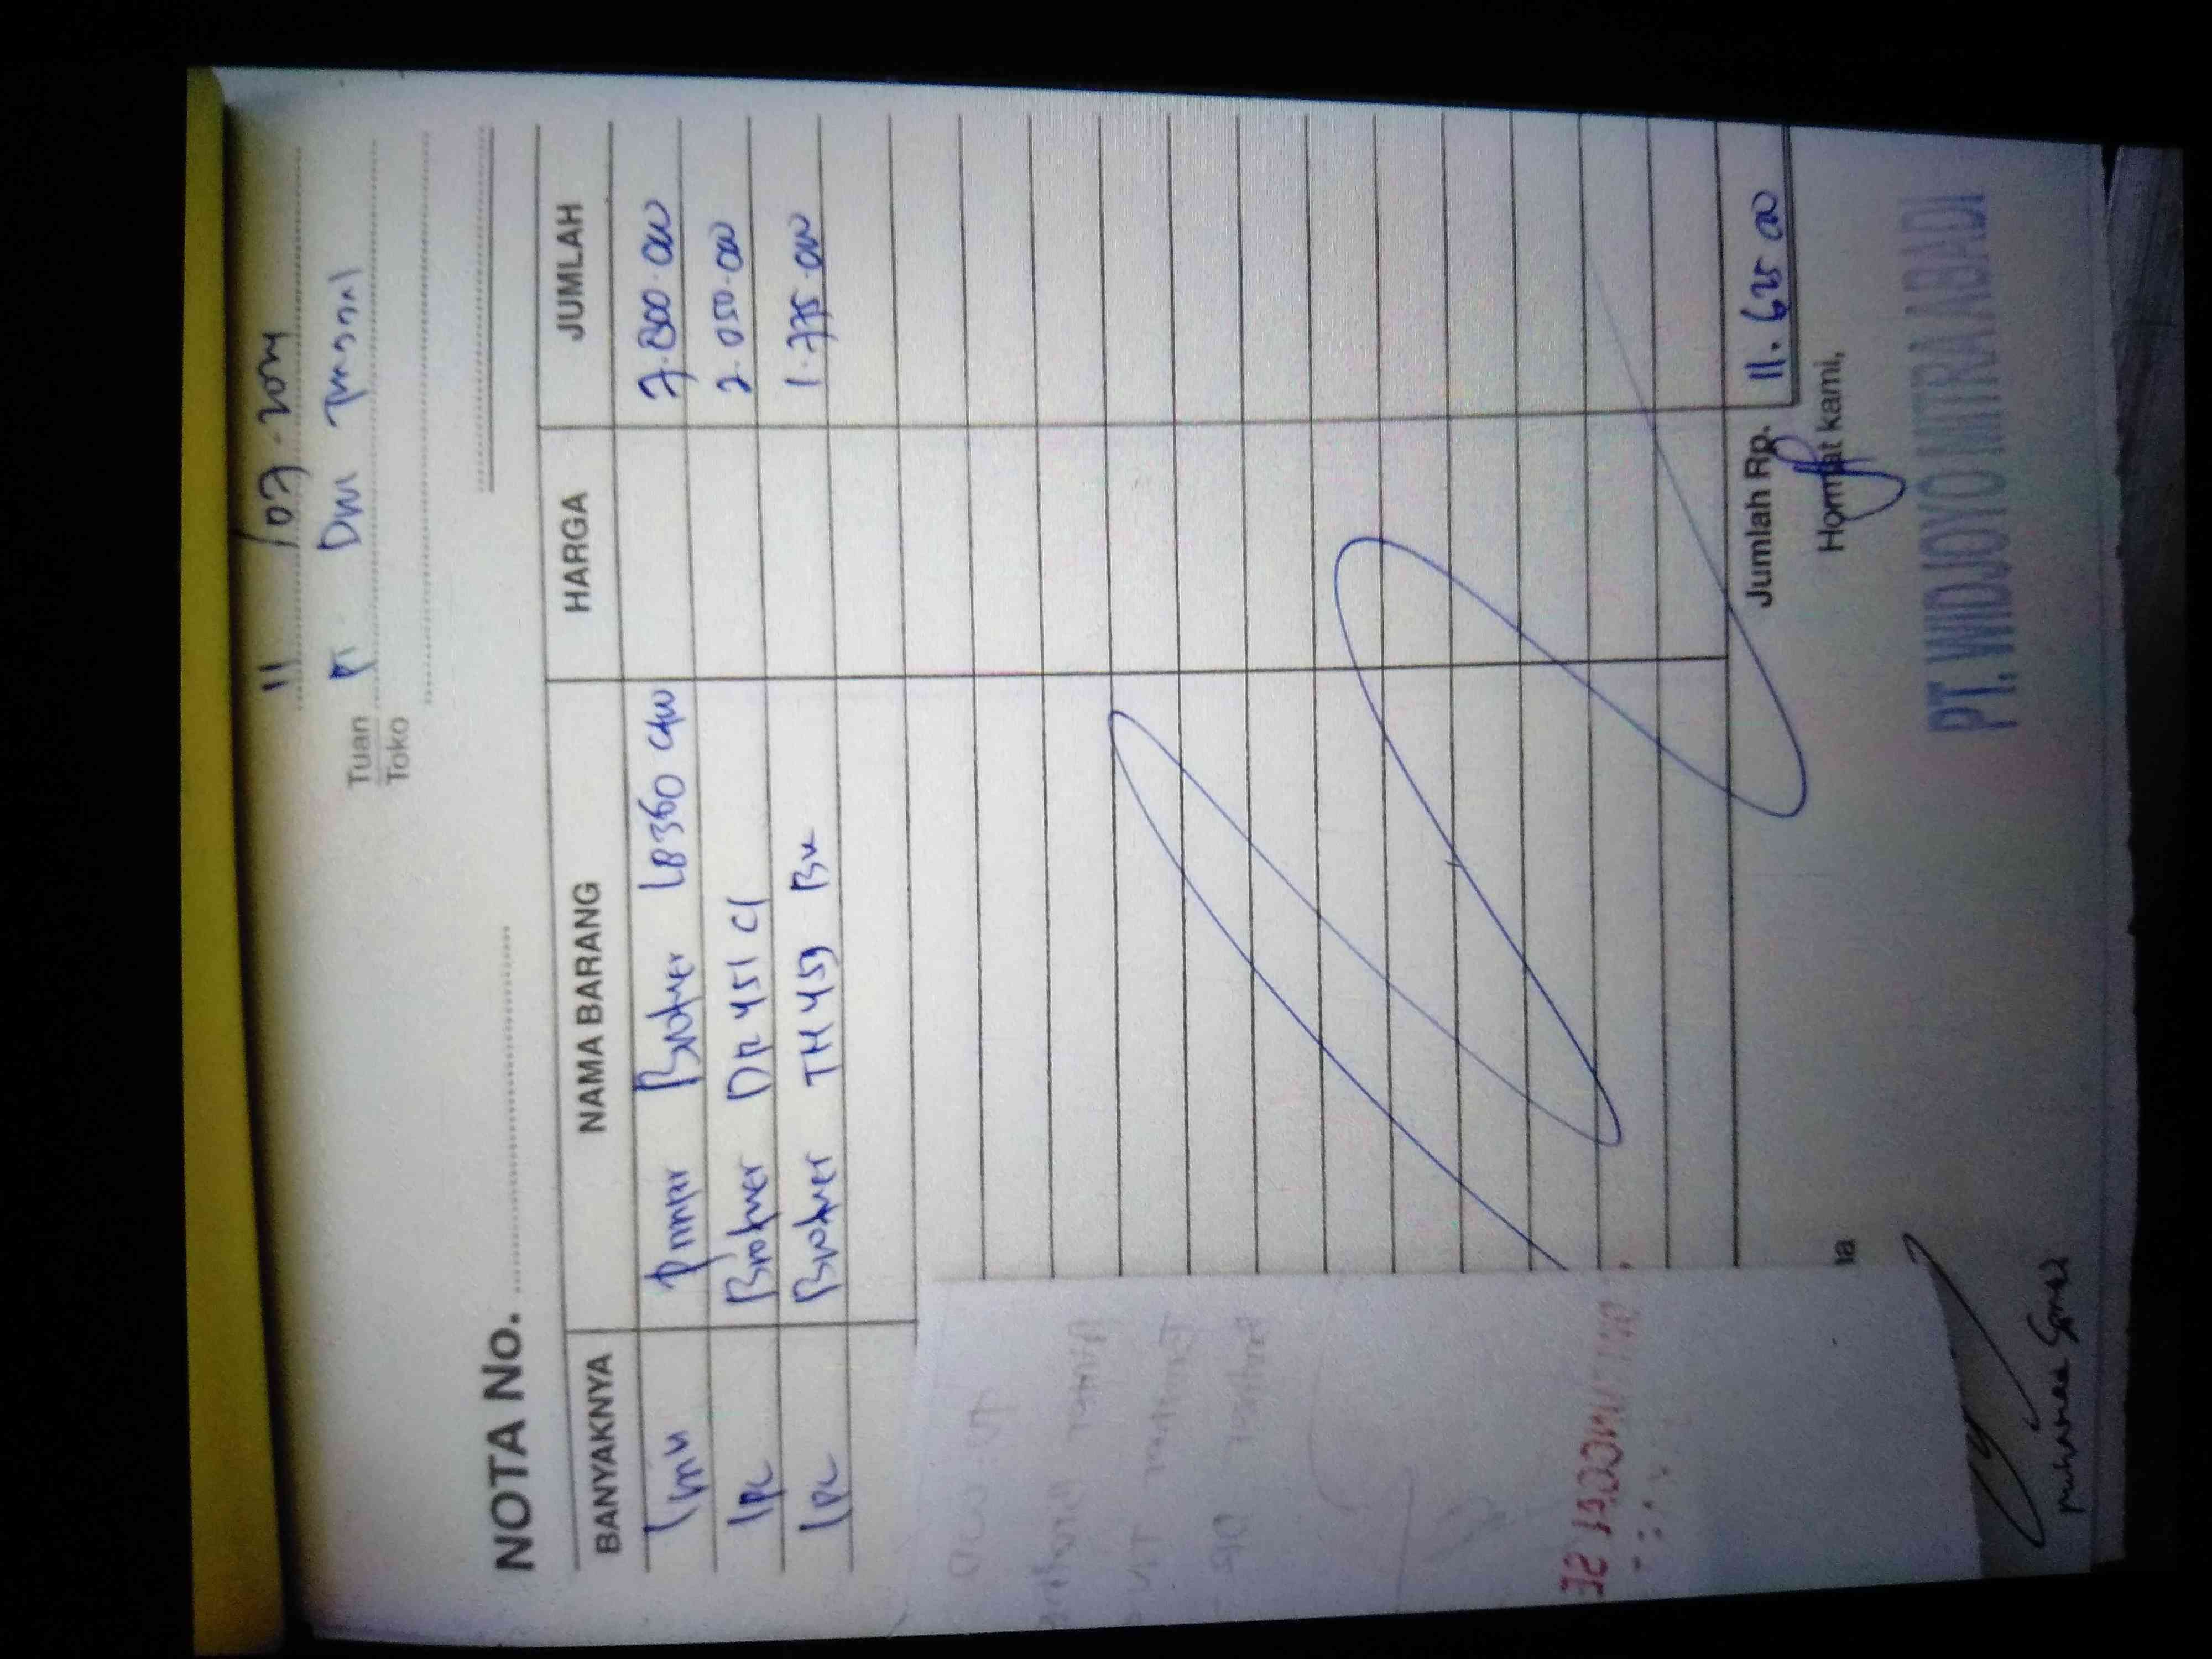 11 / 07 - 2024
Tuan PT. DWI
Toko
NOTA No.
BANYAKNYA NAMA BARANG HARGA JUMLAH
1 Printer Brother L8360 CDW 7.800.000
1 PC Brother DR 451 Cl 2.050.000
1 PC Brother TN 459 BK 1.775.000
Jumlah Rp. 11.625.00
Hormat kami,
PT. WIDJOYO MITRA ABADI